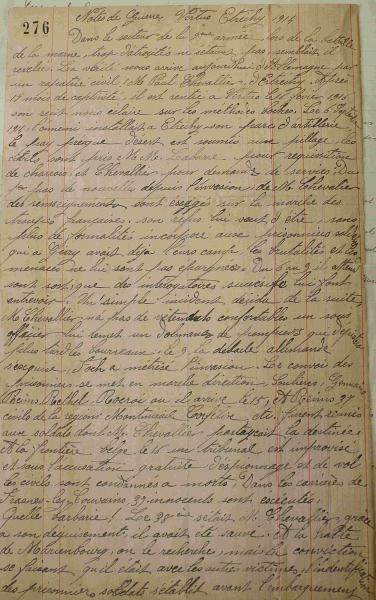 276
Note de Guerre Vertus Etrechy 1914
Dans le secteur de la 9ème armée lors de la bataille
de la marne trop d'atrocités ne seront pas semblait-il
révélées. La vérité nous arrive aujourd'hui d'Allemagne par
un rapatrié civil, M. Paul Chevallier d'Etrechy. Après
17 mois de captivité, il est rentré à Vertus le février 1916
son récit nous éclaire sur les méthodes boches. Le 5 Septembre
1914 l'ennemi installait à Etrechy son parc d'artillerie
le pays presque désert est soumis au pillage les
civils sont pris M.M. pour réquisition
de charrois et Chevallier pour demandes de services. Du
1er pas de nouvelles depuis l'invasion de M. Chevallier
des renseignements sont exigés sur la marche des
troupes françaises. son refus lui vaut d'être sans
plus de formalités incorporé aux prisonniers soldats
qui à Givry avait déjà leurs camp. les brutalités et les
menaces ne lui sont pas épargnées. Du 6 au 9 il attend
sont sort que des interrogatoires successifs lui font
entrevoir. Un simple incident décida de la suite
M. Chevallier n'a pas de vêtements confortables un sous
officier lui remet un de pompiers qui
plus tard les bourreaux. le 9, la débacle allemande
Foch a maîtrisé l'invasion. Le convoi des
prisonniers se met en marche direction
Reims Rethel Rocroi ou il arrive le 15, A Reims 27
civils de la région Montmirail etc. furent réunis
aux soldats dont M. Chevallier partageait la destinée
A la frontière belge le 16 un tribunal est improvisé
et sous l'accusation gratuite d'espionnage et de vol
les civils sont condamnés à morts. Dans les carrière de
Frasnes-lez-Couvin, 27 innocents sont exécutés.
Quelle barbarie! Le 28ème s'était M. Chevallier, grace
a son deguisement il avait été sauvé. A la halte
de Mariembourg on le recherche, mais la conviction
se faisant qu'il était avec les autres victimes, l'identification
des prisonniers soldats s'établit avant l'embarquement